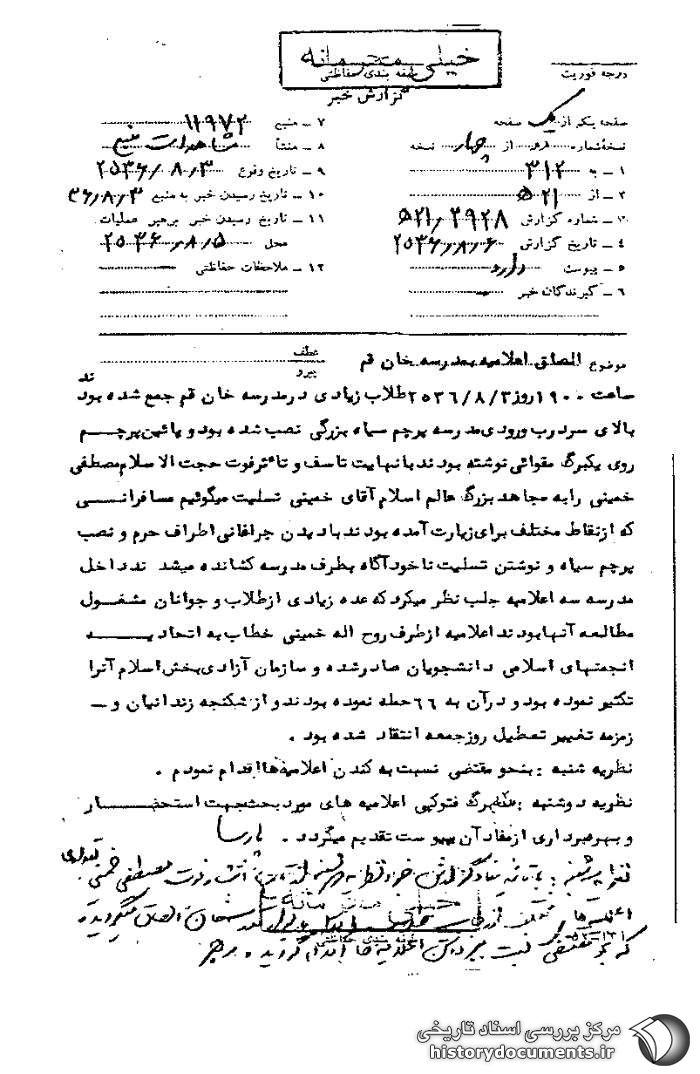 خیلی محرمانه
طبقه بندی حفاظتی
درجه فوریت
گزارش خبر
صفحه یکم از یک صفحه
نسخه شماره از چهار نسخه
۱ - به ۳۱۲
۲ - از ۵۲۱
۳ - شماره گزارش ۵۲۱/۲۹۲۸
۴ - تاریخ گزارش ۲۵۳۶/۸/۶
۵ - پیوست دارد
۶ - گیرندگان خبر
۷ - منبع ۱۱۹۷۲
۸ - منشأ مشاهدات منبع
۹ - تاریخ وقوع ۲۵۳۶/۸/۳
۱۰ - تاریخ رسیدن خبر به منبع ۳۶/۸/۳
۱۱ - تاریخ رسیدن خبر برهبر عملیات
محل ۲۵۳۶/۸/۵
۱۲ - ملاحظات حفاظتی
موضوع الصاق اعلامیه بمدرسه خان قم
عطف
پیرو
ساعت ۱۹۰۰ روز ۲۵۳۶/۸/۳ طلاب زیادی در مدرسه خان قم جمع شده بود ند
بالای سردرب ورودی مدرسه پرچم سیاه بزرگی نصب شده بود و پائین پرچم
روی یکبرگ مقوائی نوشته بودند با نهایت تاسف و تاثر فوت حجت الاسلام مصطفی
خمینی را به مجاهد بزرگ عالم اسلام آقای خمینی تسلیت میگوئیم مسافرانسی
که از نقاط مختلف برای زیارت آمده بودند با دیدن چراغانی اطراف حرم و نصب
پرچم سیاه و نوشتن تسلیت ناخودآگاه بطرف مدرسه کشانده میشد ند داخل
مدرسه سه اعلامیه جلب نظر میکرد که عده زیادی از طلاب و جوانان مشغول
مطالعه آنها بودند اعلامیه از طرف روح اله خمینی خطاب به اتحادیه
انجمنهای اسلامی دانشجویان صادر شده و سازمان آزادی بخش اسلام آنرا
تکثیر نموده بود و در آن به ۶۶ حمله نموده بودند و از شکنجه زندانیان و -
زمزمه تغییر تعطیل روز جمعه انتقاد شده بود .
نظریه شنبه : بنحو مقتضی نسبت به کندن اعلامیه ها اقدام نمودم .
نظریه دوشنبه : برگ فتوکپی اعلامیه های مورد بحث جهت استحضار
و بهره برداری از مفاد آن بپیوست تقدیم میگردد . پارسا
نظریه سه شنبه : با تأیید مفاد گزارش خبر انتشار فوت مصطفی خمینی
اعلامیه ها مختلف از طرف الصاق میگردید
که بنحو مقتضی نسبت اعلامیه ها اقدام گردید .
خیلی محرمانه
طبقه بندی حفاظتی
مرکز بررسی اسناد تاریخی
historydocuments.ir